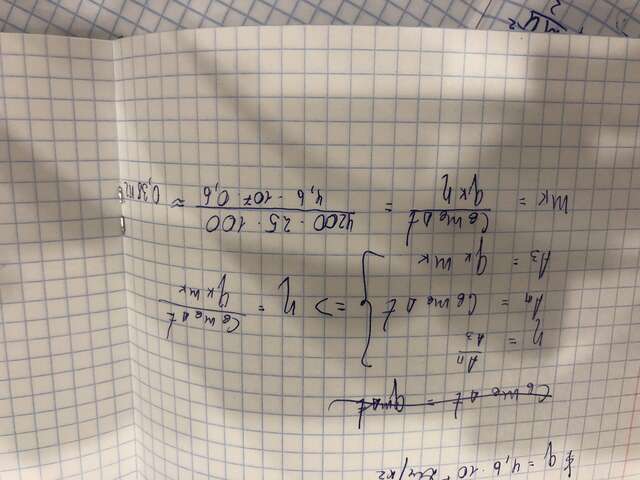 q = 4,6 · 10⁷ Дж/кг
C_в m_в Δt = qmΔt
η = A_п/A_з
A_п = C_в m_в Δt } => η = C_в m_в Δt / q_к m_к
A_з = q_к m_к
m_к = C_в m_в Δt / q_к η = 4200 · 25 · 100 / 4,6 · 10⁷ · 0,6 ≈ 0,38